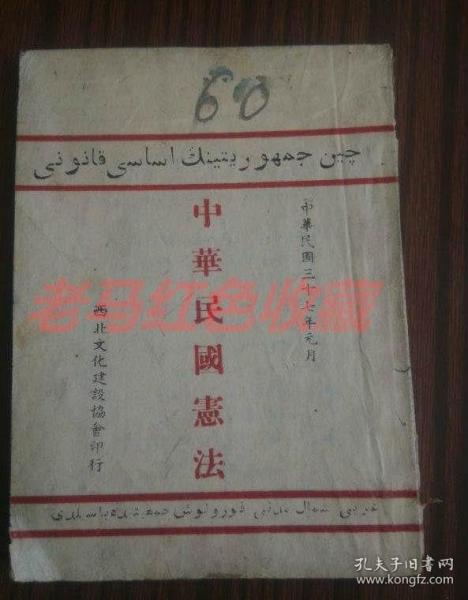 60
چين جمهوريتينك اساسى قانونى
中華民國三十七年元月
中華民國憲法
西北文化建設協會印行
غربى شمال مدنى قورولوش جمعيتده باسيلدى
老马红色收藏
孔夫子旧书网
www.kongfz.com